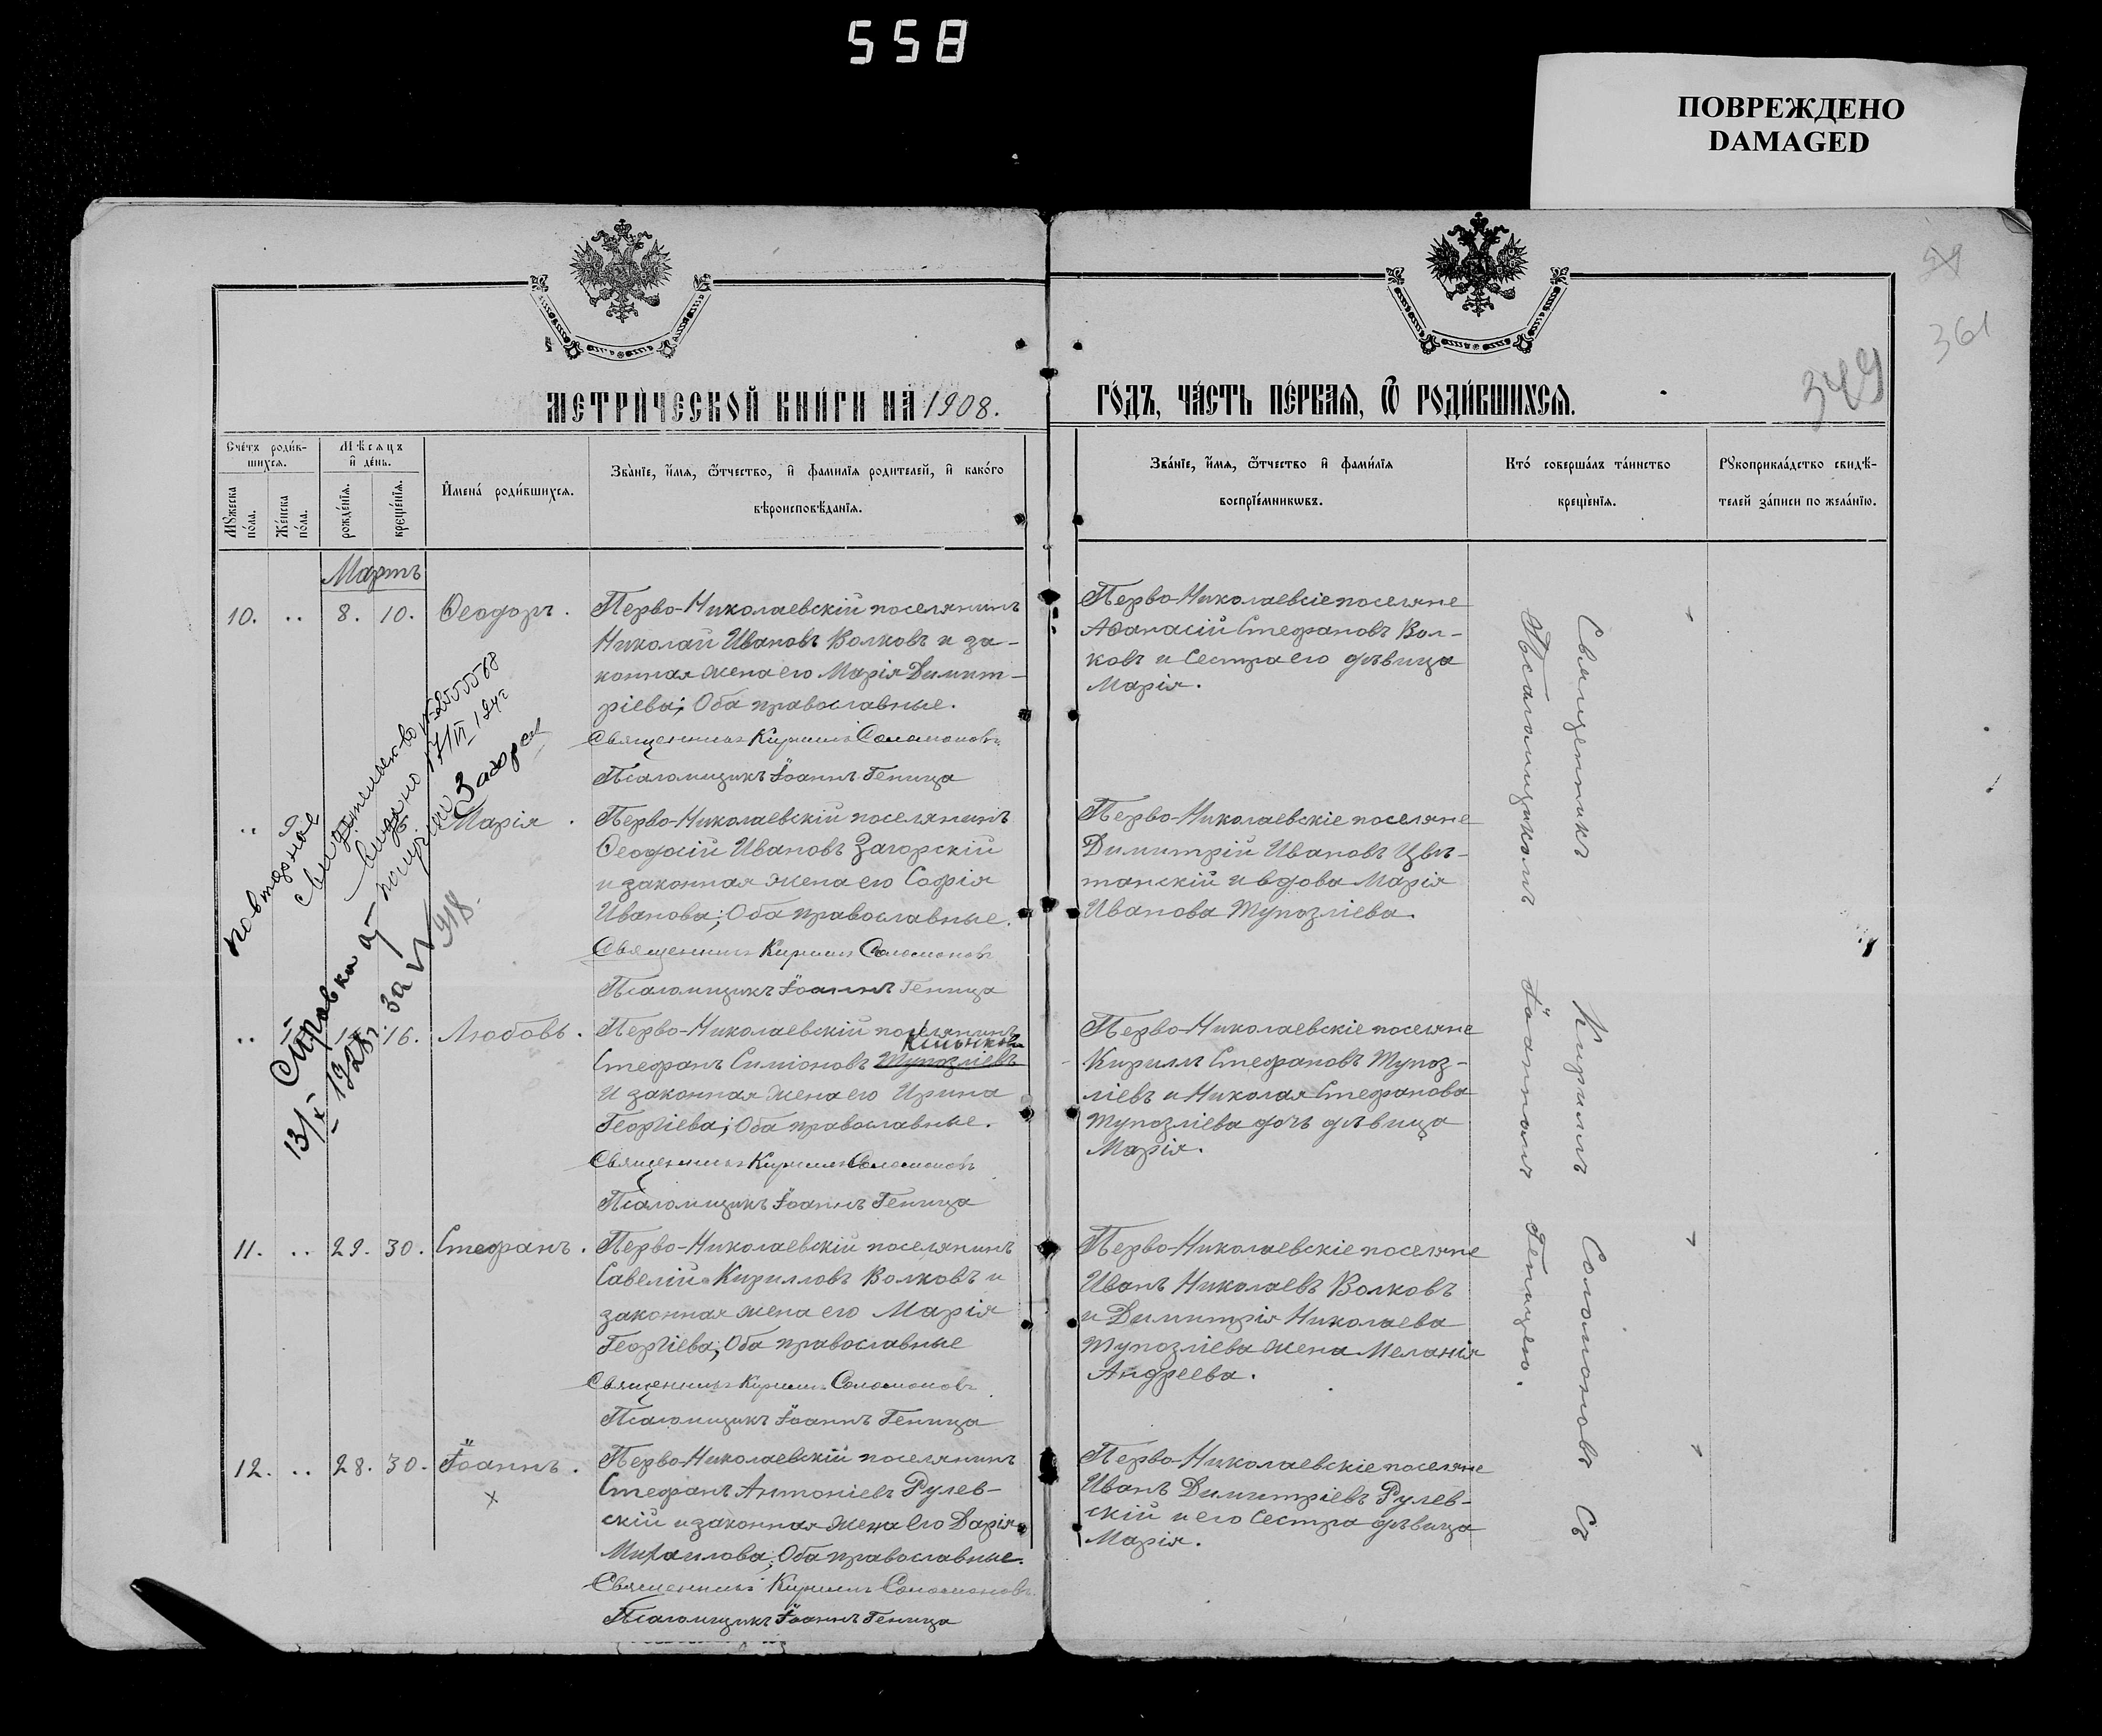 558
ПОВРЕЖДЕНО
DAMAGED
361
349
МЕТРИ́ЧЕСКОЙ КНИ́ГИ НА̀ 1908.
ГО́ДЪ, ЧА́СТЬ ПЕ́РВАЯ, Ѿ РОДИ́ВШИХСЯ.
Сче́тъ роди́в-
шихся.
Мꙋ́жеска по́ла.
Же́нска по́ла.
Мѣ́сяцъ и де́нь.
рожде́нія.
креще́нія.
Имена́ роди́вшихся.
Зва́ніе, и́мя, ѻ́тчество, и фами́лія родителей, и како́го
вѣроисповѣ́данія.
Зва́ніе, и́мя, ѻ́тчество и фами́лія
воспріе́мниковъ.
Кто̀ соверша́лъ та́инство
креще́нія.
Рꙋкоприкла́дство свидѣ́-
телей за́писи по жела́нію.
Мартъ
10. .. 8. 10. Ѳеодоръ.
Перво-Николаевскій поселянинъ
Николай Ивановъ Волковъ и за-
конная жена его Марія Димит-
ріева; Оба православные.
Священникъ Кириллъ Соломоновъ
Псаломщикъ Іоаннъ Геница
Перво-Николаевскіе поселяне
Аѳанасій Стефановъ Вол-
ковъ и сестра его дѣвица
Марія.
.. 9 Марія.
Перво-Николаевскій поселянинъ
Ѳеодосій Ивановъ Загорскій
и законная жена его Софія
Иванова; Оба православные.
Священникъ Кириллъ Соломоновъ
Псаломщикъ Іоаннъ Геница
Перво-Николаевскіе поселяне
Димитрій Ивановъ Цвѣ-
танскій и вдова Марія
Иванова Тупозліева.
повторное
свидетельство
выдано
Справка
13/X 1928г. за № 918.
.. 16. Любовь.
Перво-Николаевскій поселянинъ
Стефанъ Симіоновъ Тупозліевъ
и законная жена его Ирина
Георгіева; Оба православные.
Священникъ Кириллъ Соломоновъ
Псаломщикъ Іоаннъ Геница
Перво-Николаевскіе поселяне
Кириллъ Стефановъ Тупоз-
ліевъ и Николая Стефанова
Тупозліева дочь дѣвица
Марія.
11. .. 29. 30. Стефанъ.
Перво-Николаевскій поселянинъ
Савелій Кирилловъ Волковъ и
законная жена его Марія
Георгіева; Оба православные
Священникъ Кириллъ Соломоновъ
Псаломщикъ Іоаннъ Геница
Перво-Николаевскіе поселяне
Иванъ Николаевъ Волковъ
и Димитрія Николаева
Тупозліева жена Меланія
Андреева.
12. .. 28. 30. Іоаннъ.
Перво-Николаевскій поселянинъ
Стефанъ Антоніевъ Рулев-
скій и законная жена его Дарія
Михаилова; Оба православные.
Священникъ Кириллъ Соломоновъ
Псаломщикъ Іоаннъ Геница
Перво-Николаевскіе поселяне
Иванъ Димитріевъ Рулев-
скій и его сестра дѣвица
Марія.
Священникъ Кириллъ Соломоновъ съ
Псаломщикомъ Іоанномъ Геницею.